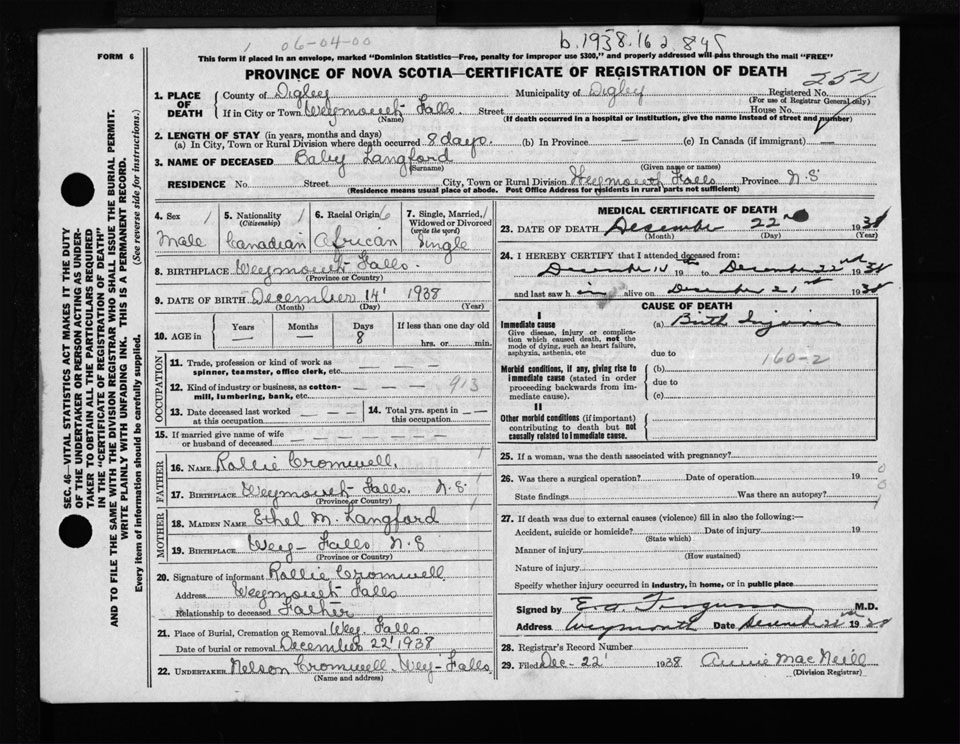 06-04-00
b.1938.162.845
FORM 6
This form if placed in an envelope, marked "Dominion Statistics—Free, penalty for improper use $300," and properly addressed will pass through the mail "FREE"
PROVINCE OF NOVA SCOTIA—CERTIFICATE OF REGISTRATION OF DEATH
252
1. PLACE OF DEATH
County of Digby Municipality of Digby Registered No.
(For use of Registrar General only)
If in City or Town Weymouth Falls Street House No.
(Name) (If death occurred in a hospital or institution, give the name instead of street and number)
2. LENGTH OF STAY (in years, months and days)
(a) In City, Town or Rural Division where death occurred 8 days. (b) In Province — (c) In Canada (if immigrant) —
3. NAME OF DECEASED Baby Langford
(Surname) (Given name or names)
RESIDENCE No. Street City, Town or Rural Division Weymouth Falls Province N.S
(Residence means usual place of abode. Post Office Address for residents in rural parts not sufficient)
4. Sex 1 5. Nationality 1 (Citizenship) 6. Racial Origin 6 7. Single, Married, Widowed or Divorced (write the word) 1
Male Canadian African Single
8. BIRTHPLACE Weymouth Falls.
(Province or Country)
9. DATE OF BIRTH December 14' 1938
(Month) (Day) (Year)
10. AGE in Years Months Days If less than one day old
— 0 — — 8 hrs. or min.
OCCUPATION
11. Trade, profession or kind of work as spinner, teamster, office clerk, etc. — — — —
12. Kind of industry or business, as cotton-mill, lumbering, bank, etc. — — — 913
13. Date deceased last worked at this occupation — — —
14. Total yrs. spent in this occupation — —
15. If married give name of wife or husband of deceased — — — — —
FATHER
16. NAME Rallie Cromwell.
17. BIRTHPLACE Weymouth Falls. N.S
(Province or Country)
MOTHER
18. MAIDEN NAME Ethel M. Langford
19. BIRTHPLACE Wey- Falls N.S
(Province or Country)
20. Signature of informant Rallie Cromwell
Address Weymouth Falls
Relationship to deceased Father
21. Place of Burial, Cremation or Removal Wey. Falls
Date of burial or removal December 22' 1938
22. UNDERTAKER Nelson Cromwell Wey-Falls
(Name and address)
MEDICAL CERTIFICATE OF DEATH
23. DATE OF DEATH December 22nd 1938
(Month) (Day) (Year)
24. I HEREBY CERTIFY that I attended deceased from:
December 14th 19 to December 22nd 1938
and last saw h im alive on December 21st 1938
CAUSE OF DEATH
I
Immediate cause (a) Birth Injuries
Give disease, injury or complication which caused death, not the mode of dying, such as heart failure, asphyxia, asthenia, etc
due to
160-2
Morbid conditions, if any, giving rise to immediate cause (stated in order proceeding backwards from immediate cause).
(b)
due to
(c)
II
Other morbid conditions (if important) contributing to death but not causally related to immediate cause.
25. If a woman, was the death associated with pregnancy?
26. Was there a surgical operation? Date of operation 19
State findings Was there an autopsy?
27. If death was due to external causes (violence) fill in also the following:—
Accident, suicide or homicide? Date of injury 19
(State which)
Manner of injury
(How sustained)
Nature of injury
Specify whether injury occurred in industry, in home, or in public place
Signed by E.A. Ferguson M.D.
Address Weymouth Date December 22nd 1938
28. Registrar's Record Number
29. Filed Dec- 22' 1938 Annie MacNeill
(Division Registrar)
SEC. 46—VITAL STATISTICS ACT MAKES IT THE DUTY
OF THE UNDERTAKER OR PERSON ACTING AS UNDER-
TAKER TO OBTAIN ALL THE PARTICULARS REQUIRED
IN THE "CERTIFICATE OF REGISTRATION OF DEATH"
AND TO FILE THE SAME WITH THE DIVISION REGISTRAR WHO SHALL ISSUE THE BURIAL PERMIT.
WRITE PLAINLY WITH UNFADING INK. THIS IS A PERMANENT RECORD.
Every item of information should be carefully supplied. (See reverse side for instructions.)